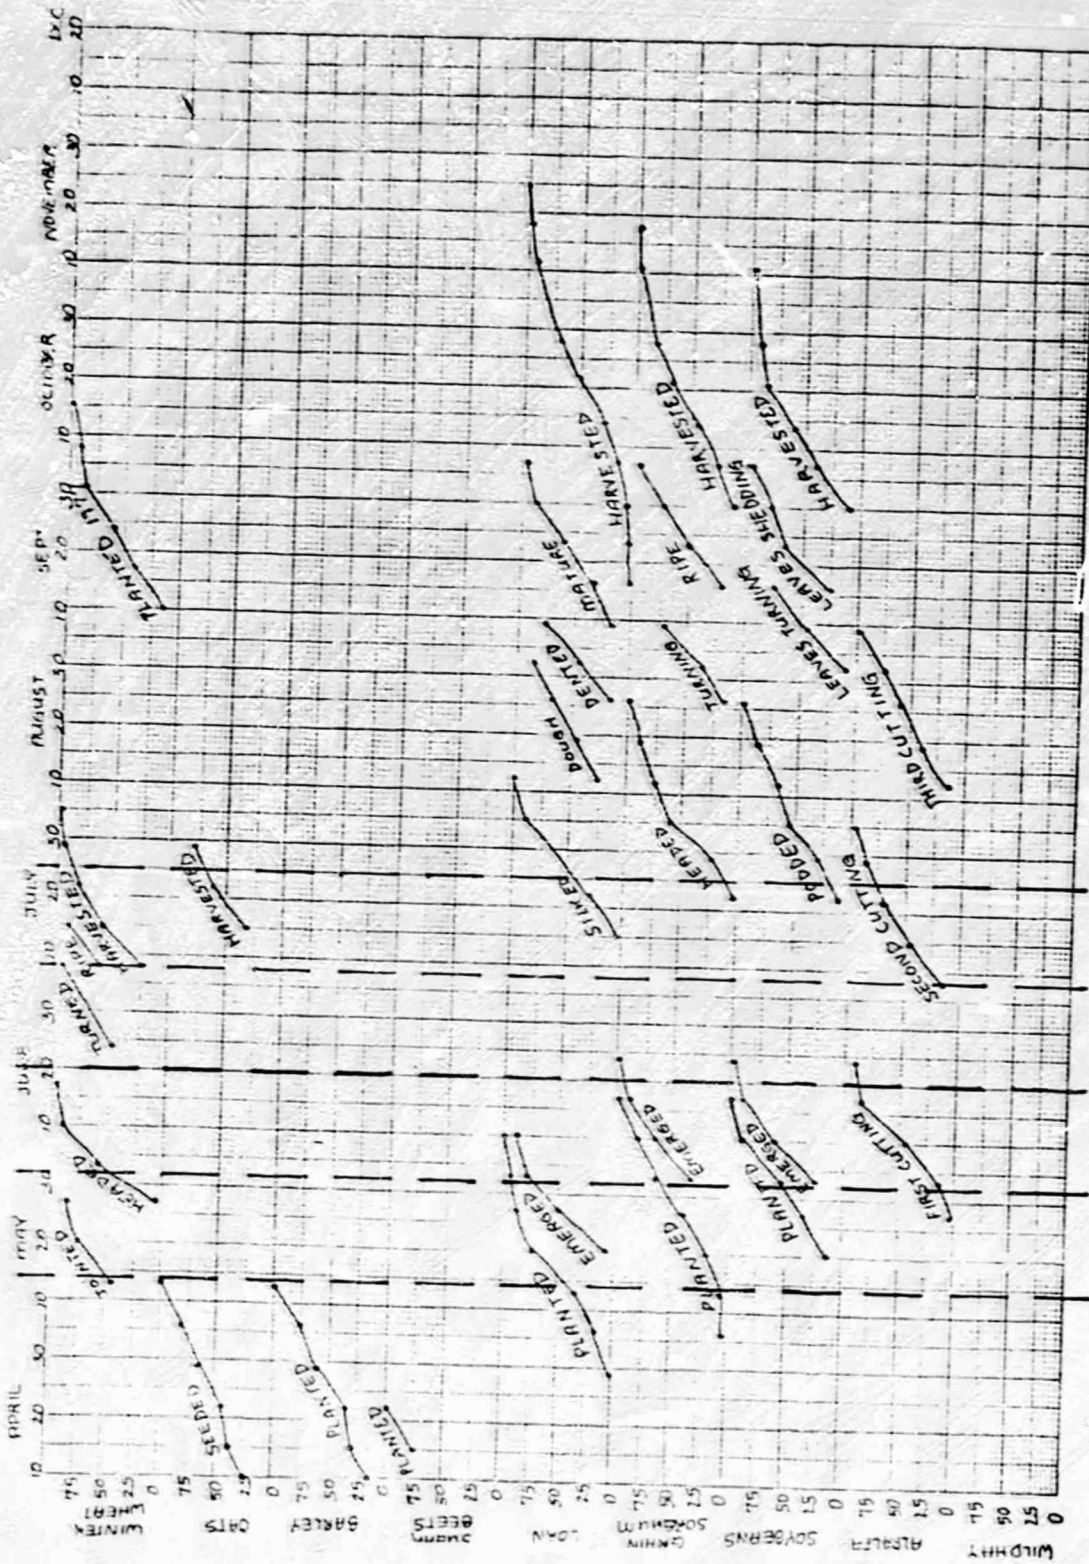 APRIL MAY JUNE JULY AUGUST SEPT OCTOBER NOVEMBER DEC
10 20 30 10 20 30 10 20 30 10 20 30 10 20 30 10 20 30 10 20 30 10 20 30 10 20
WINTER WHEAT
75
50
25
0
JOINTED
HEADED
TURNED
RIPE
HARVESTED
PLANTED 1977
OATS
75
50
25
0
SEEDED
HARVESTED
BARLEY
75
50
25
0
PLANTED
SUGAR BEETS
75
50
25
0
PLANTED
CORN
75
50
25
0
PLANTED
EMERGED
SILKED
DOUGH
DENTED
MATURE
HARVESTED
GRAIN SORGHUM
75
50
25
0
PLANTED
EMERGED
HEADED
TURNING
RIPE
HARVESTED
SOYBEANS
75
50
25
0
PLANTED
EMERGED
PODDED
LEAVES TURNING
LEAVES SHEDDING
HARVESTED
ALFALFA
75
50
25
0
FIRST CUTTING
SECOND CUTTING
THIRD CUTTING
WILD HAY
75
50
25
0